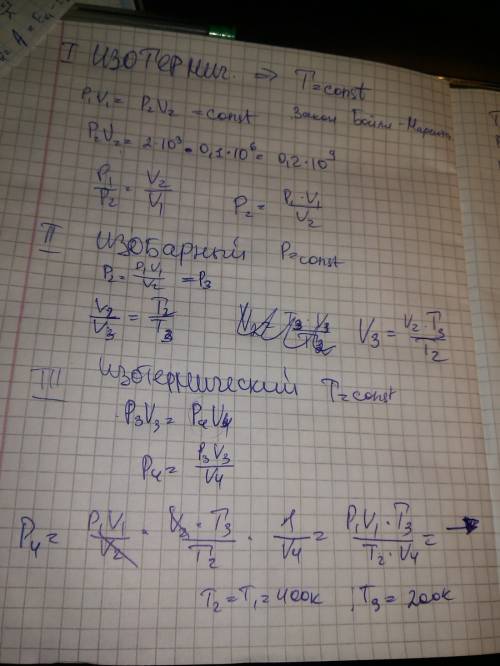 I изотермич. => T=const
P₁V₁ = P₂V₂ = const Закон Бойля-Мариотта
P₂V₂ = 2·10³ · 0,1·10⁶ = 0,2·10⁹
P₁/P₂ = V₂/V₁ P₂ = P₁·V₁/V₂
II изобарный P=const
P₂ = P₁V₁/V₂ = P₃
V₂/V₃ = T₂/T₃ V₃ = V₂·T₃/T₂
III изотермический T=const
P₃V₃ = P₄V₄
P₄ = P₃V₃/V₄
P₄ = P₁V₁/V₂ · V₂·T₃/T₂ · 1/V₄ = P₁V₁·T₃/T₂·V₄ = →
T₂ = T₁ = 400к ; T₃ = 200к